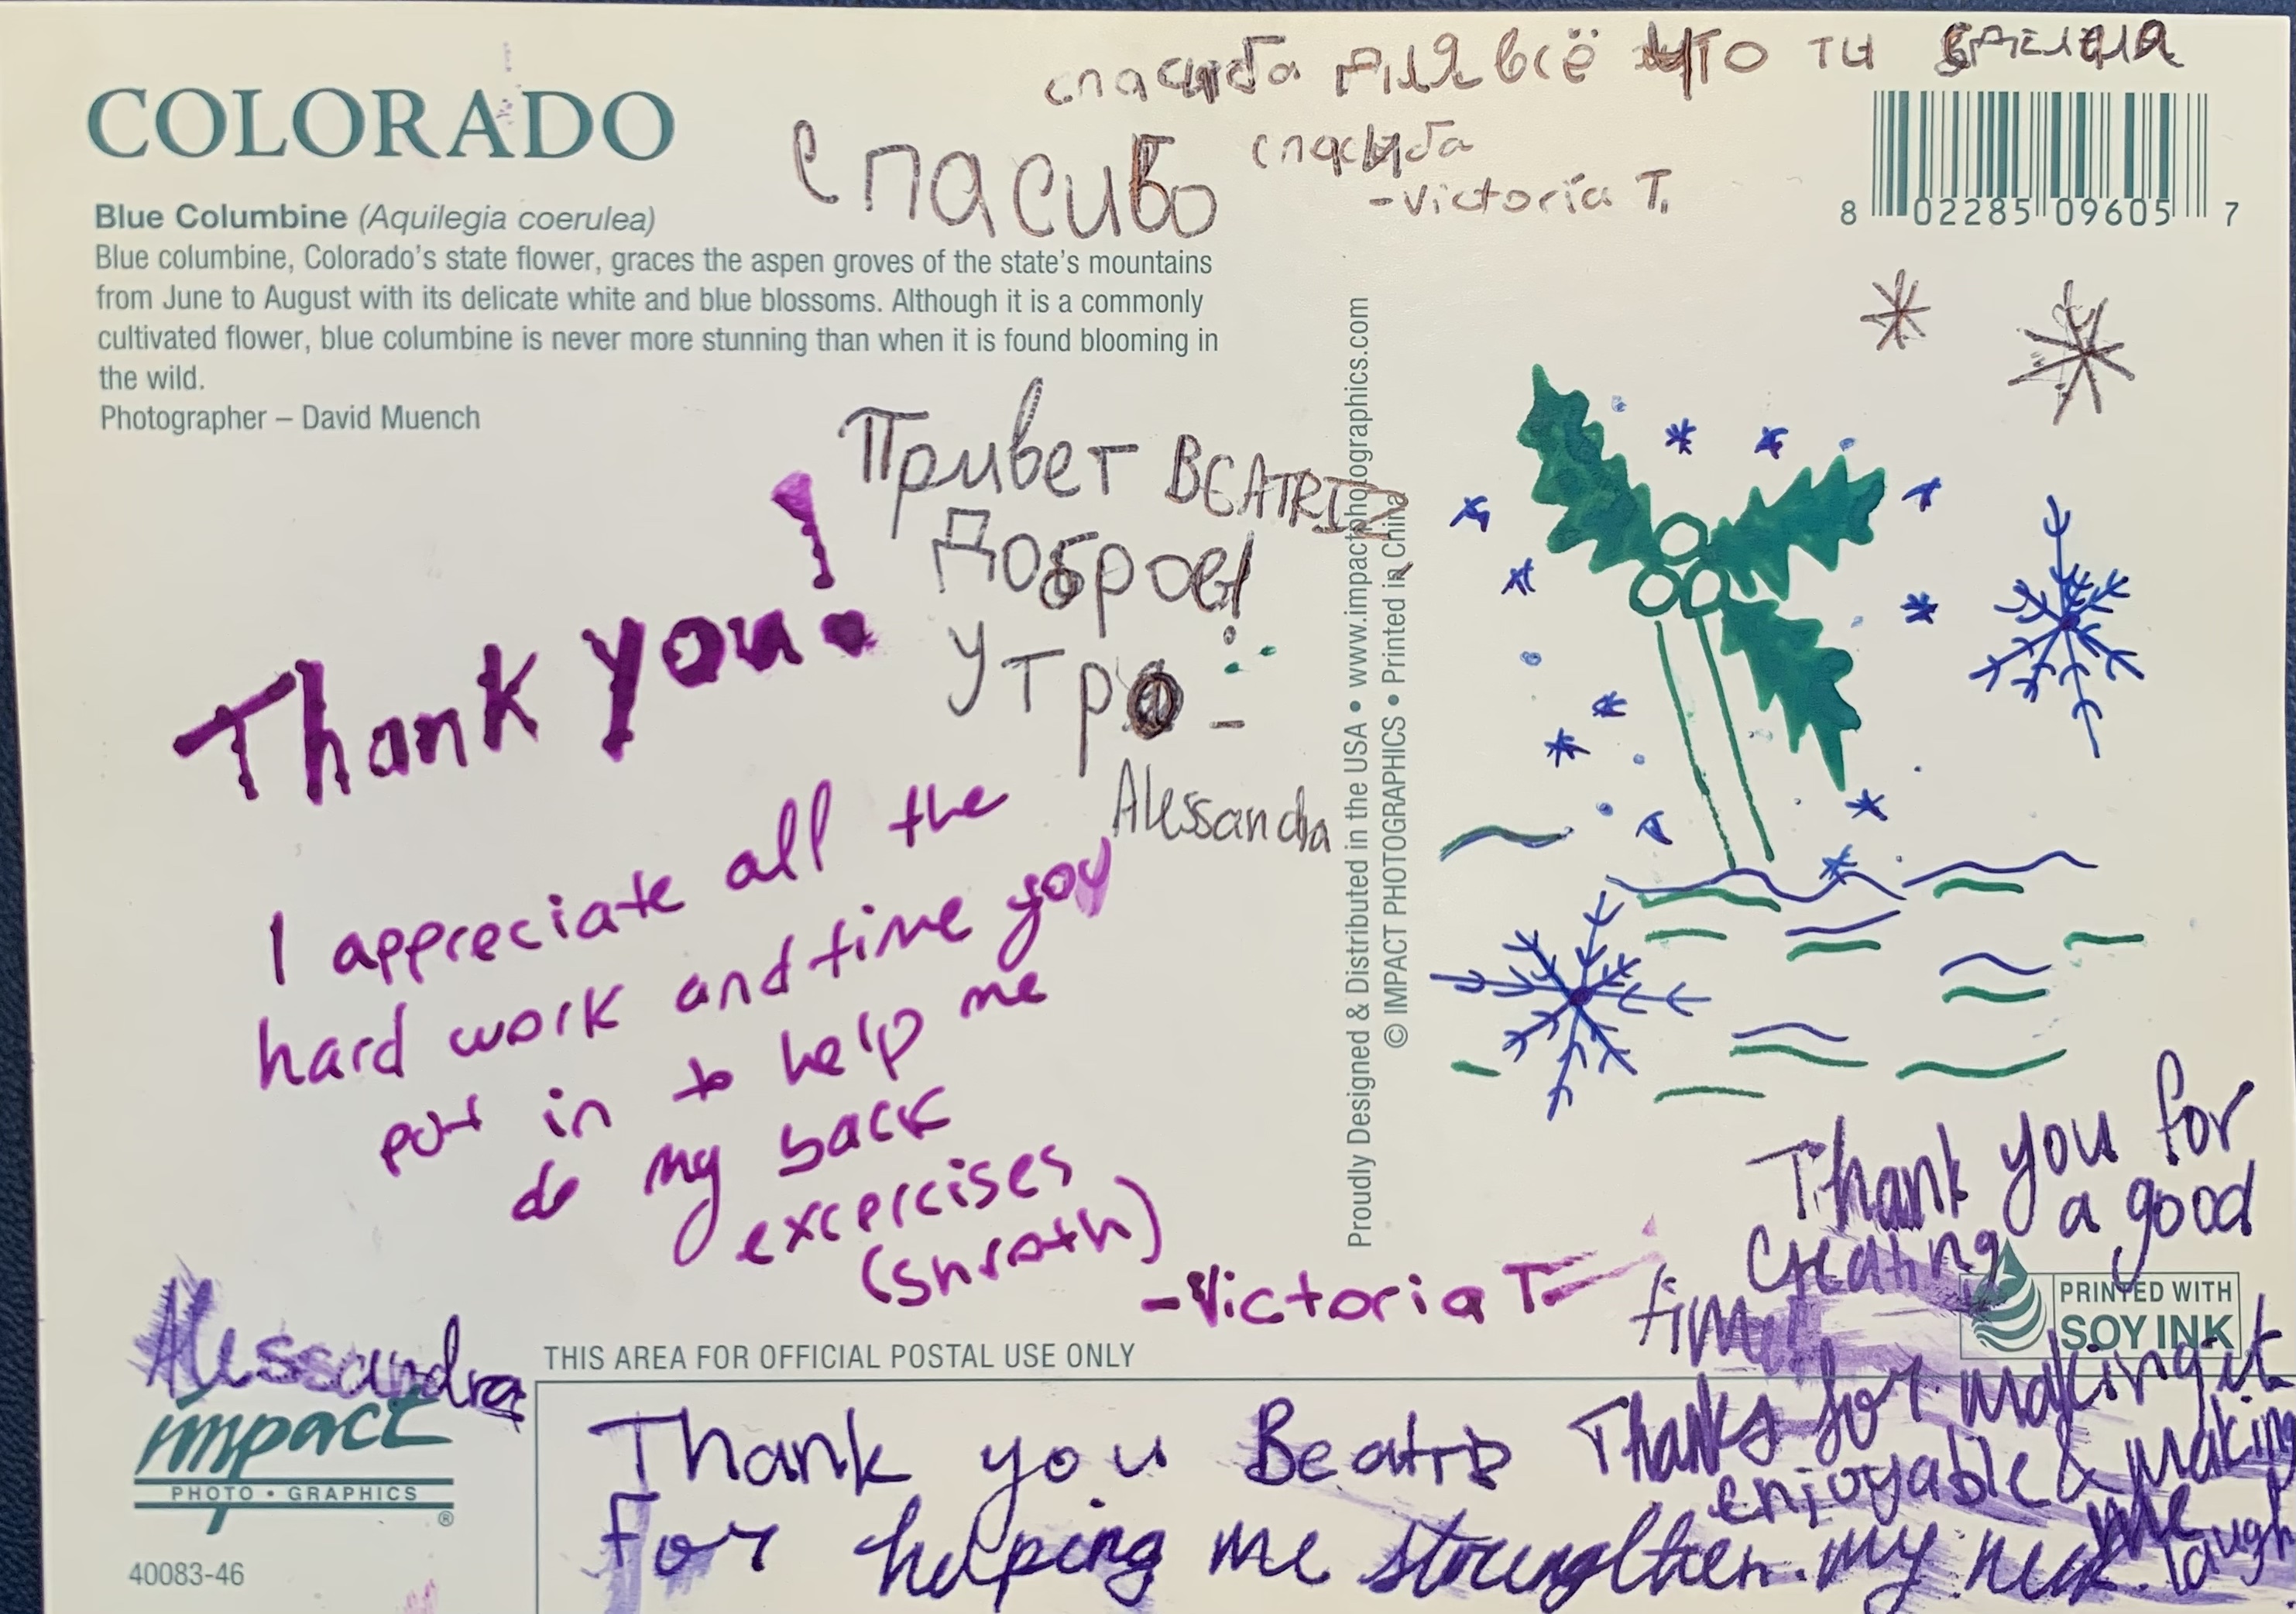 COLORADO
Blue Columbine (Aquilegia coerulea)
Blue columbine, Colorado's state flower, graces the aspen groves of the state's mountains
from June to August with its delicate white and blue blossoms. Although it is a commonly
cultivated flower, blue columbine is never more stunning than when it is found blooming in
the wild.
Photographer – David Muench
спасиба для всё что ти
Спасибо
спасиба
-Victoria T.
8 02285 09605 7
Привет BEATRIZ
Доброе!
утро :
-
Alessandra
Thank you!
I appreciate all the
hard work and time you
put in to help me
do my back
excercises
(Shroth)
-Victoria T
Proudly Designed & Distributed in the USA • www.impactphotographics.com
© IMPACT PHOTOGRAPHICS • Printed in China
Thank you for
creating a good
time!
PRINTED WITH
SOY INK
Alessandra
impact
PHOTO • GRAPHICS
®
40083-46
THIS AREA FOR OFFICIAL POSTAL USE ONLY
Thank you Beatriz
For helping me strengthen my neck.
Thanks for making it
enjoyable & making
me
laugh